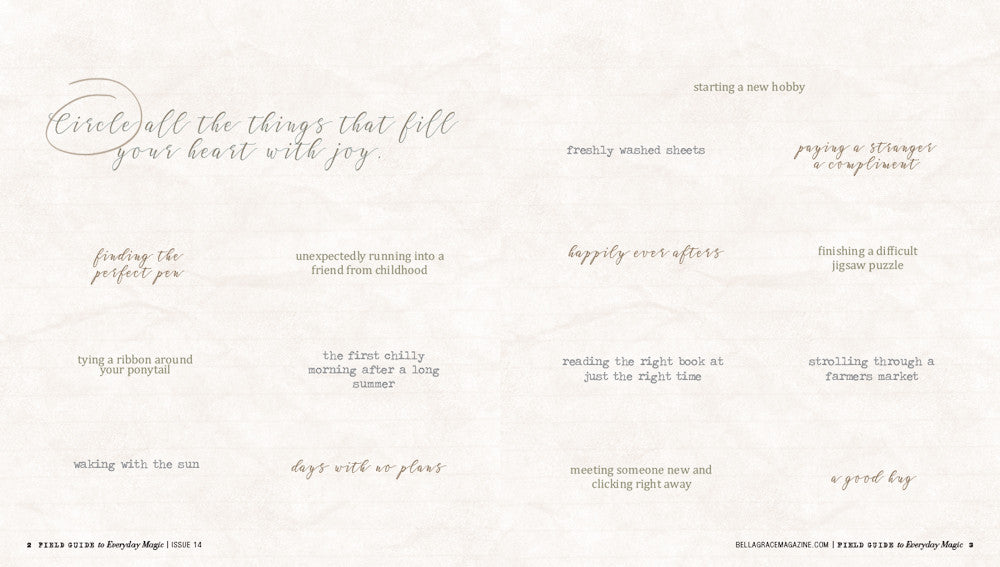 Circle all the things that fill
your heart with joy.
finding the
perfect pen
unexpectedly running into a
friend from childhood
tying a ribbon around
your ponytail
the first chilly
morning after a long
summer
waking with the sun
days with no plans
2 FIELD GUIDE to Everyday Magic | ISSUE 14
starting a new hobby
freshly washed sheets
paying a stranger
a compliment
happily ever afters
finishing a difficult
jigsaw puzzle
reading the right book at
just the right time
strolling through a
farmers market
meeting someone new and
clicking right away
a good hug
BELLAGRACEMAGAZINE.COM | FIELD GUIDE to Everyday Magic 3